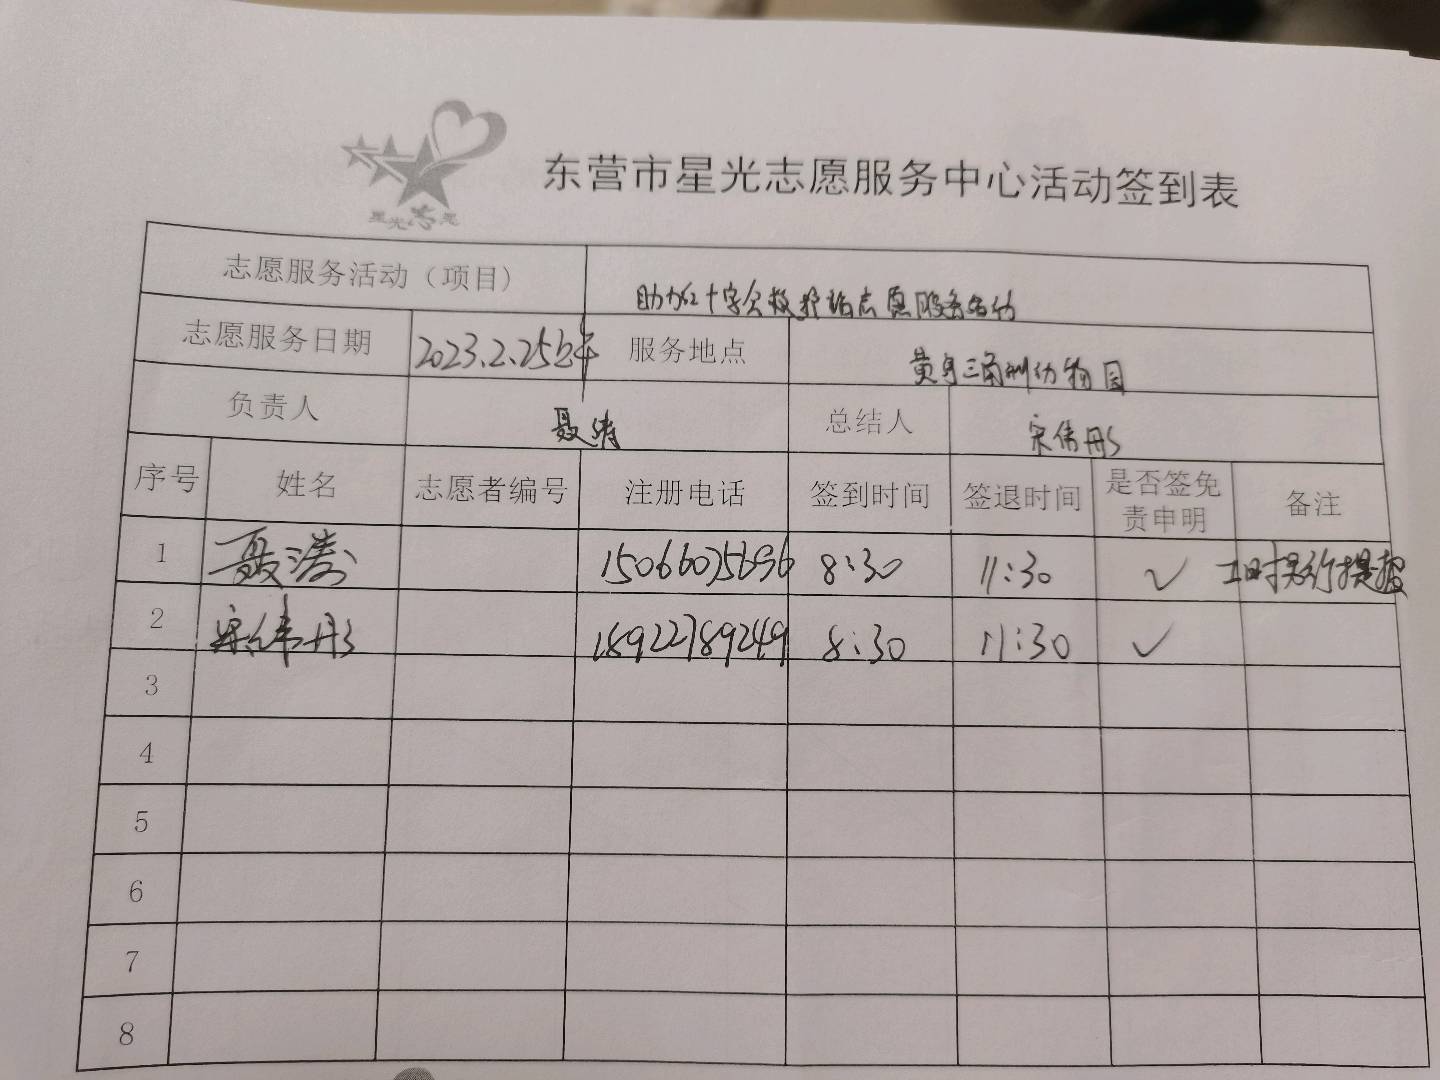 星光志愿
东营市星光志愿服务中心活动签到表
志愿服务活动（项目） 助力红十字会救护站志愿服务活动
志愿服务日期 2023.2.25上午 服务地点 黄河三角洲动物园
负责人 聂涛 总结人 宋伟彤
序号 姓名 志愿者编号 注册电话 签到时间 签退时间 是否签免责申明 备注
1 聂涛 15066075696 8:30 11:30 ✓ 工时另行提报
2 宋伟彤 18922789249 8:30 11:30 ✓
3
4
5
6
7
8